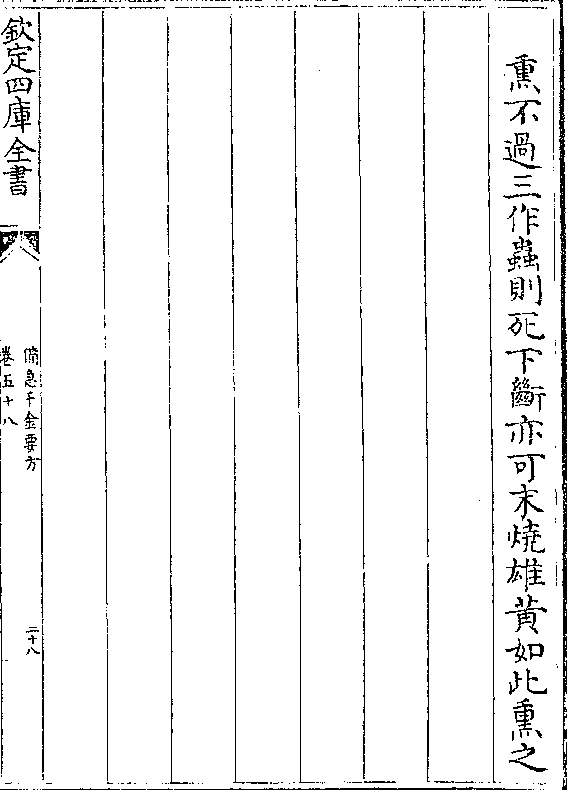 熏不過三作蟲則死下斷亦可末燒雄黃如此熏之
欽定四庫全書
備急千金要方
卷五十八
二十八